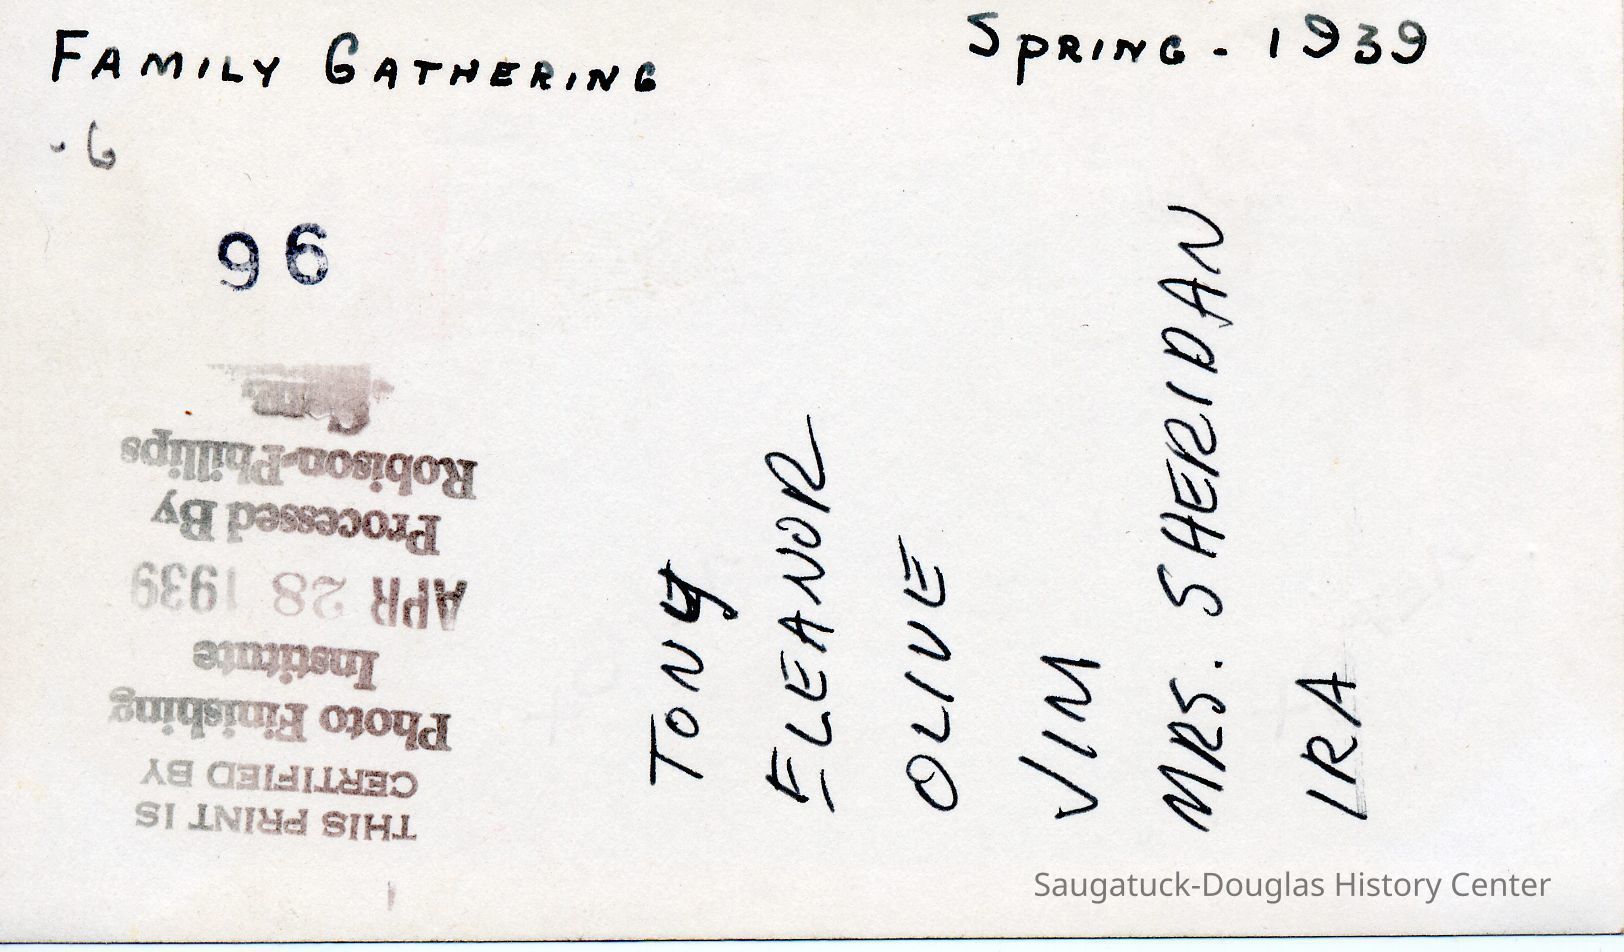 FAMILY GATHERING
SPRING - 1939
6
96
THIS PRINT IS
CERTIFIED BY
Photo Finishing
Institute
APR 28 1939
Processed By
Robison-Phillips
TONY
ELEANOR
OLIVE
VIM
MRS. SHERIDAN
IRA
Saugatuck-Douglas History Center